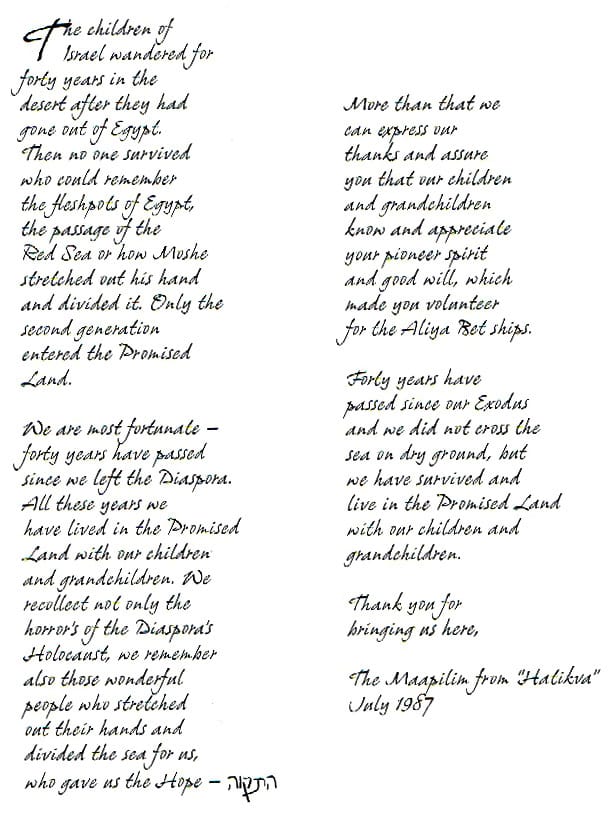 The children of
Israel wandered for
forty years in the
desert after they had
gone out of Egypt.
Then no one survived
who could remember
the fleshpots of Egypt,
the passage of the
Red Sea or how Moshe
stretched out his hand
and divided it. Only the
second generation
entered the Promised
Land.

We are most fortunate –
forty years have passed
since we left the Diaspora.
All these years we
have lived in the Promised
Land with our children
and grandchildren. We
recollect not only the
horror's of the Diaspora's
Holocaust, we remember
also those wonderful
people who stretched
out their hands and
divided the sea for us,
who gave us the Hope – התקוה

More than that we
can express our
thanks and assure
you that our children
and grandchildren
know and appreciate
your pioneer spirit
and good will, which
made you volunteer
for the Aliya Bet ships.

Forty years have
passed since our Exodus
and we did not cross the
sea on dry ground, but
we have survived and
live in the Promised Land
with our children and
grandchildren.

Thank you for
bringing us here,

The Maapilim from "Hatikva"
July 1987